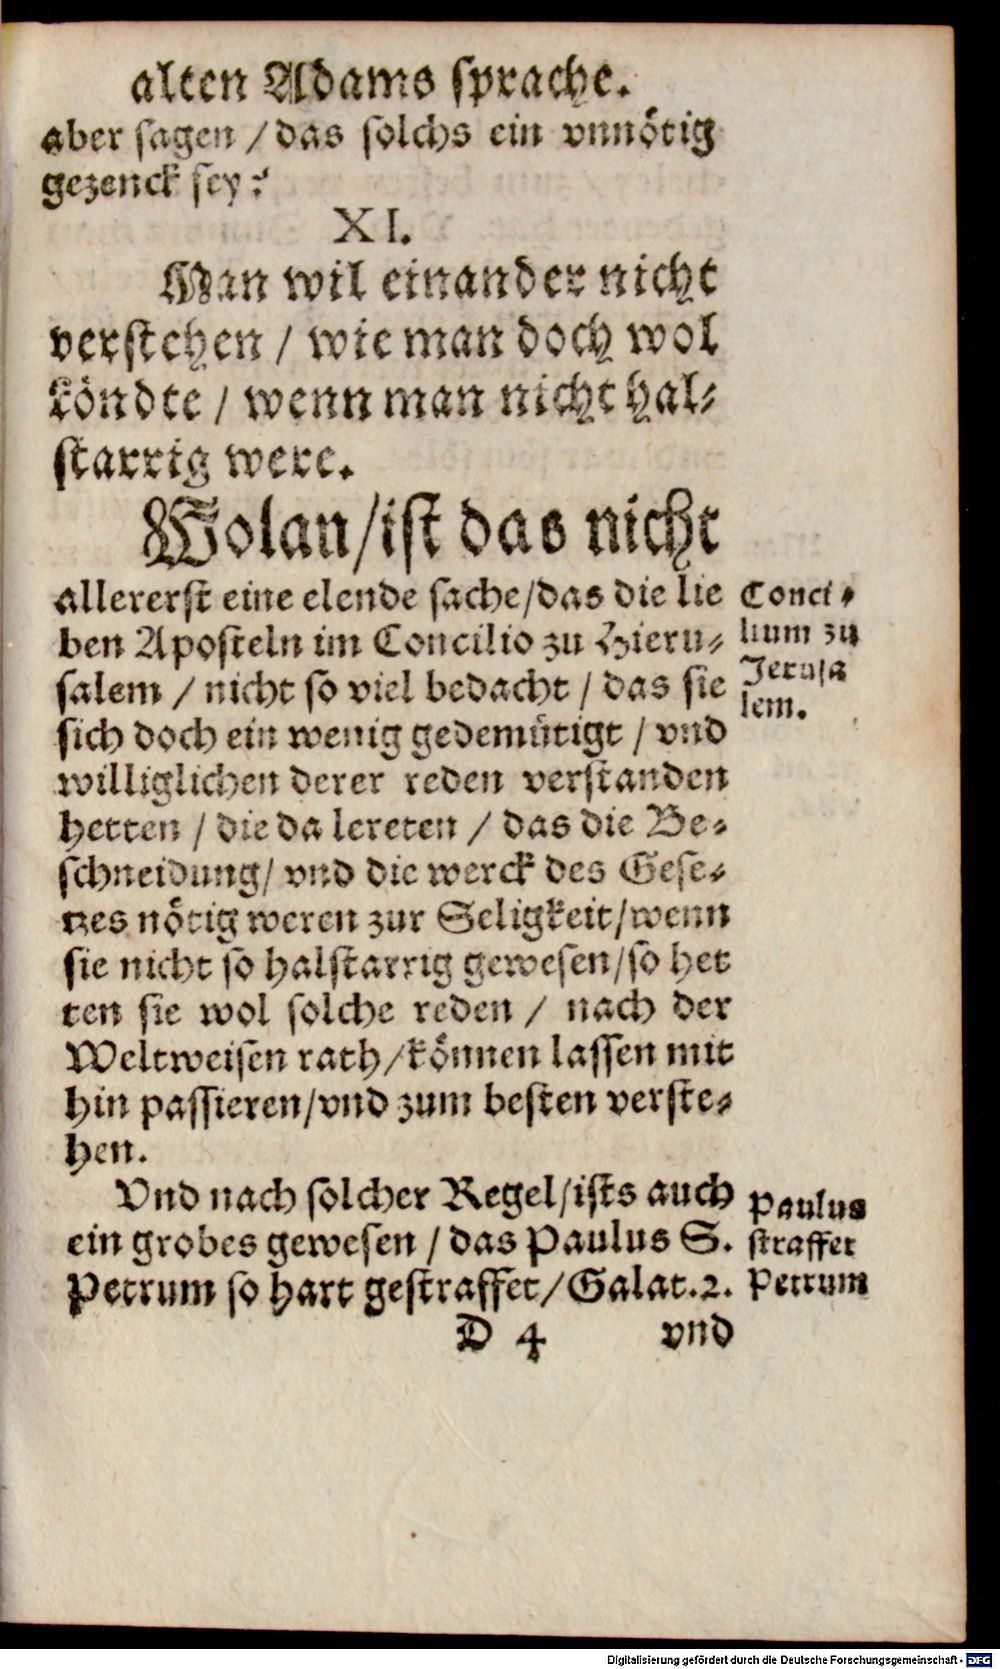 alten Adams sprache.
aber sagen / das solchs ein vnnötig
gezenck sey?
XI.
Man wil einander nicht
verstehen / wie man doch wol
köndte / wenn man nicht hal-
starrig were.
Wolan / ist das nicht
allererst eine elende sache / das die lie
ben Aposteln im Concilio zu Hieru-
salem / nicht so viel bedacht / das sie
sich doch ein wenig gedemütigt / vnd
williglichen derer reden verstanden
hetten / die da lereten / das die Be-
schneidung / vnd die werck des Gese-
tzes nötig weren zur Seligkeit / wenn
sie nicht so halstarrig gewesen / so het
ten sie wol solche reden / nach der
Weltweisen rath / können lassen mit
hin passieren / vnd zum besten verste-
hen.
Conci-
lium zu
Jerusa
lem.
Vnd nach solcher Regel / ists auch
ein grobes gewesen / das Paulus S.
Petrum so hart gestraffet / Galat.2.
Paulus
straffet
Petrum
D 4 vnd
Digitalisierung gefördert durch die Deutsche Forschungsgemeinschaft - DFG